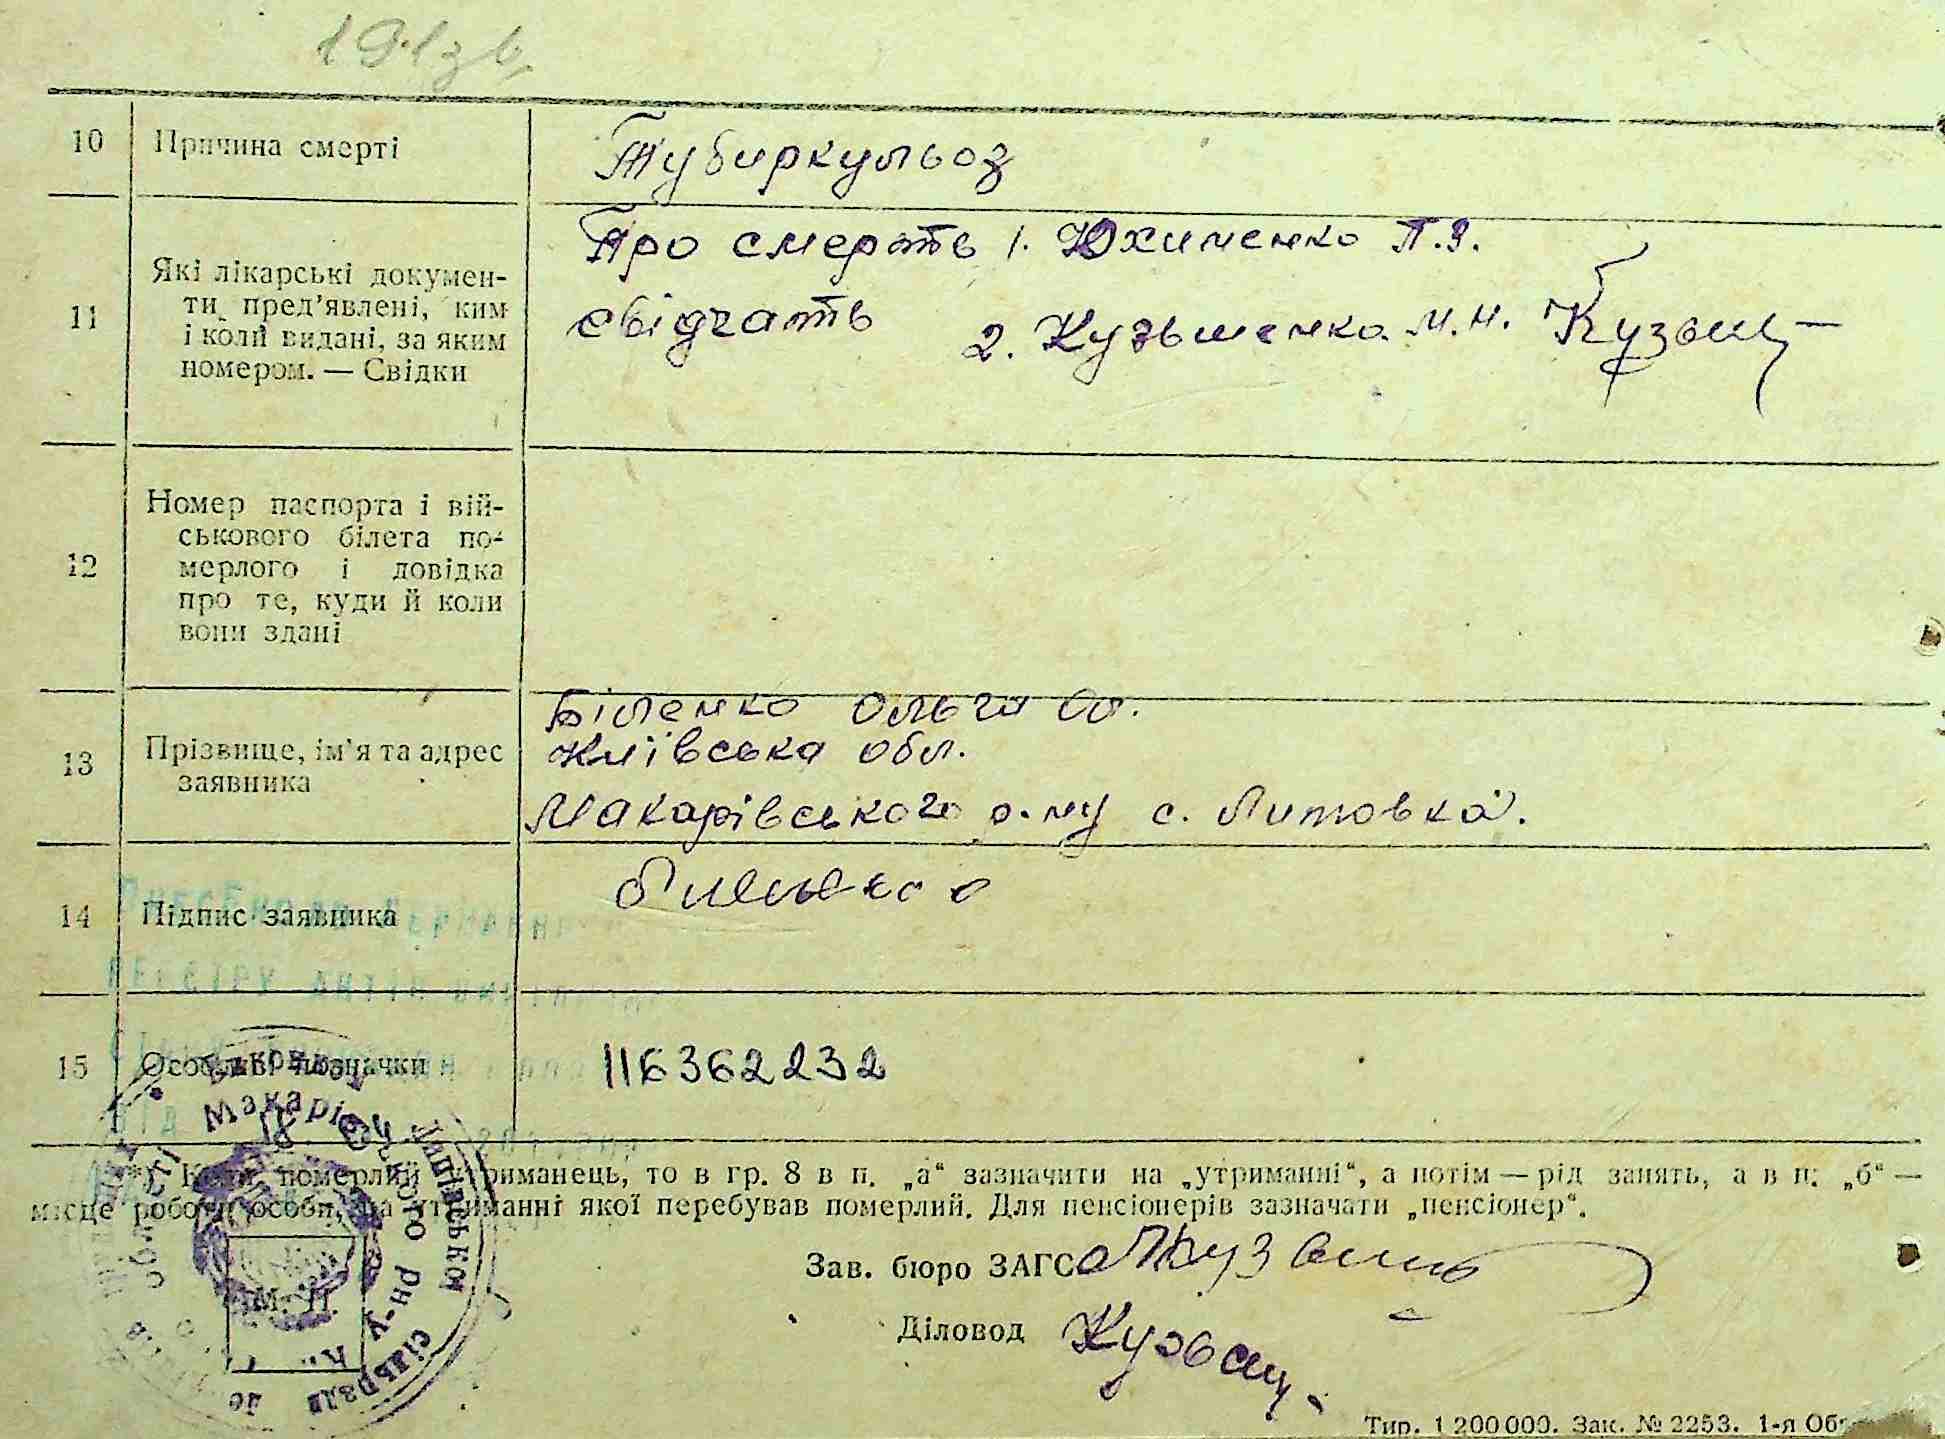 191зв.
10 Причина смерті Туберкульоз
Про смерть 1. Юхименко П.З.
11 Які лікарські докумен-
ти пред’явлені, ким
свідчать 2. Кузьменко М.Н. Кузьм
і коли видані, за яким
номером. — Свідки
12 Номер паспорта і вій-
ськового білета по-
мерлого і довідка
про те, куди й коли
вони здані
Біленко Ольга
13 Прізвище, ім’я та адрес
заявника
Київська обл.
Макарівського р-ну с. Липовка.
14 Підпис заявника
15 Особливі позначки 116362232
*) Коли померлий утриманець, то в гр. 8 в п. „а“ зазначити на „утриманні“, а потім — рід занять, а в п. „б“ —
місце роботи особи, на утриманні якої перебував померлий. Для пенсіонерів зазначати „пенсіонер“.
Зав. бюро ЗАГС
М. П.
Діловод
Тир. 1 200 000. Зак. № 2253. 1-я